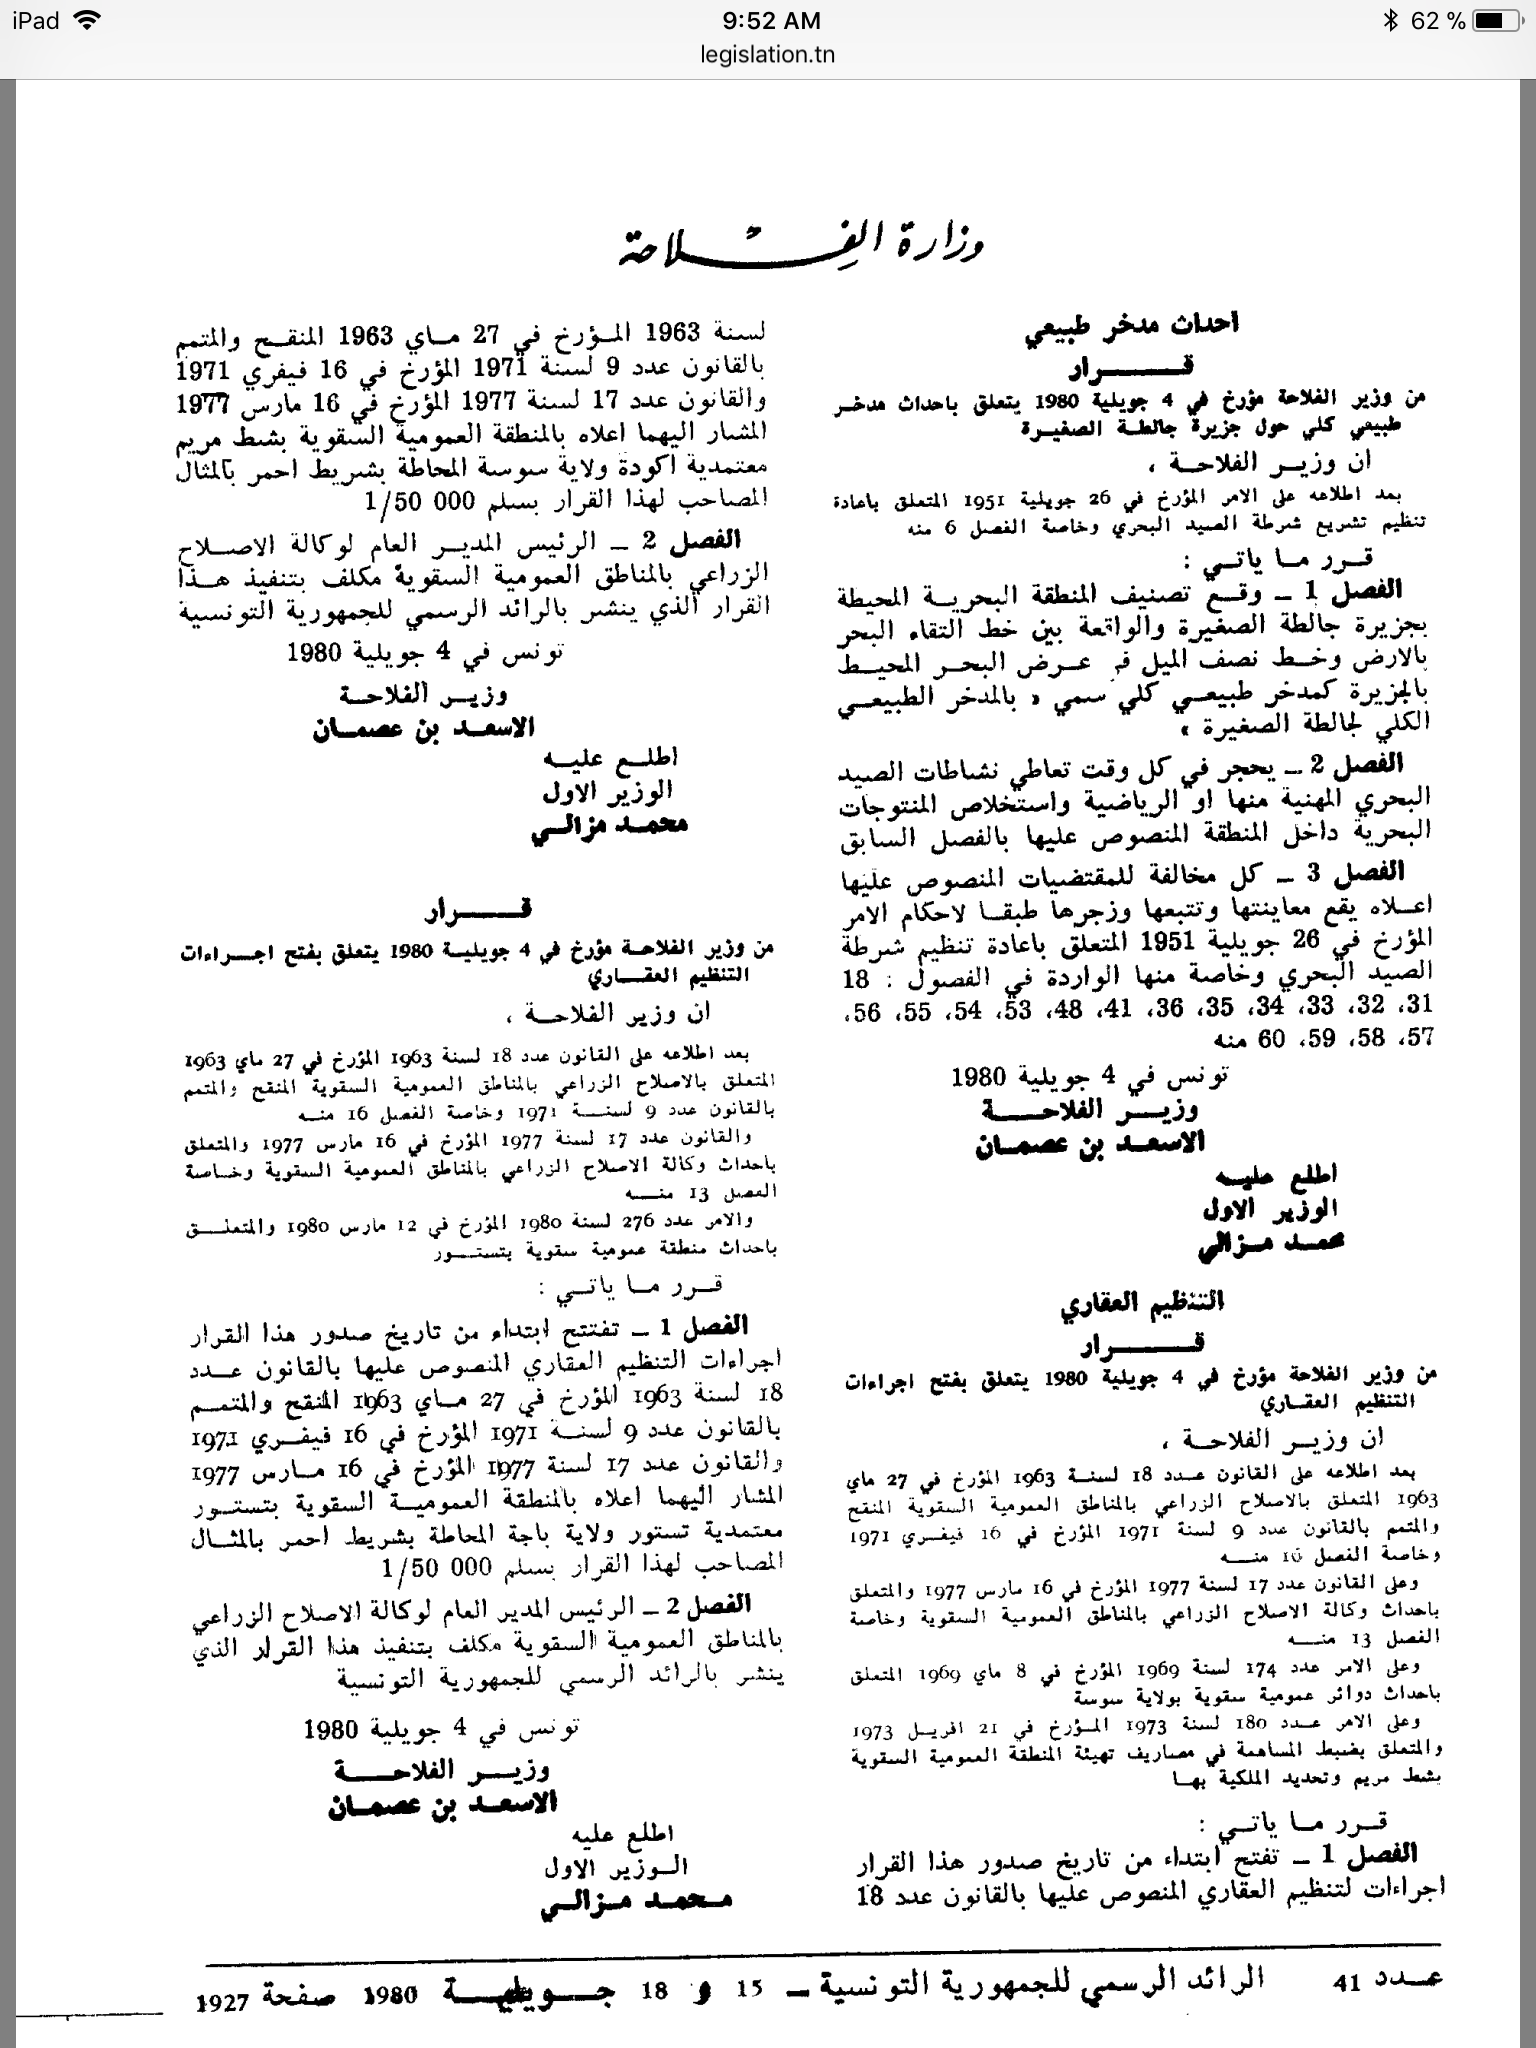 iPad
9:52 AM
62 %
legislation.tn
وزارة الفلاحة
احداث مدخر طبيعي
قرار
من وزير الفلاحة مؤرخ في 4 جويلية 1980 يتعلق باحداث مدخر
طبيعي كلي حول جزيرة جالطة الصغيرة
ان وزير الفلاحة ،
بعد اطلاعه على الامر المؤرخ في 26 جويلية 1951 المتعلق باعادة
تنظيم تشريع شرطة الصيد البحري وخاصة الفصل 6 منه
قرر ما ياتي :
الفصل 1 ــ وقع تصنيف المنطقة البحرية المحيطة
بجزيرة جالطة الصغيرة والواقعة بين خط التقاء البحر
بالارض وخط نصف الميل في عرض البحر المحيط
بالجزيرة كمدخر طبيعي كلي سمي « بالمدخر الطبيعي
الكلي لجالطة الصغيرة »
الفصل 2 ــ يحجر في كل وقت تعاطي نشاطات الصيد
البحري المهنية منها او الرياضية واستخلاص المنتوجات
البحرية داخل المنطقة المنصوص عليها بالفصل السابق
الفصل 3 ــ كل مخالفة للمقتضيات المنصوص عليها
اعلاه يقع معاينتها وتتبعها وزجرها طبقا لاحكام الامر
المؤرخ في 26 جويلية 1951 المتعلق باعادة تنظيم شرطة
الصيد البحري وخاصة منها الواردة في الفصول : 18
31، 32، 33، 34، 35، 36، 41، 48، 53، 54، 55، 56،
57، 58، 59، 60 منه
تونس في 4 جويلية 1980
وزير الفلاحة
الاسعد بن عصمان
اطلع عليه
الوزير الاول
محمد مزالي
التنظيم العقاري
قرار
من وزير الفلاحة مؤرخ في 4 جويلية 1980 يتعلق بفتح اجراءات
التنظيم العقاري
ان وزير الفلاحة ،
بعد اطلاعه على القانون عدد 18 لسنة 1963 المؤرخ في 27 ماي
1963 المتعلق بالاصلاح الزراعي بالمناطق العمومية السقوية المنقح
والمتمم بالقانون عدد 9 لسنة 1971 المؤرخ في 16 فيفري 1971
وخاصة الفصل 16 منه
وعلى القانون عدد 17 لسنة 1977 المؤرخ في 16 مارس 1977 والمتعلق
باحداث وكالة الاصلاح الزراعي بالمناطق العمومية السقوية وخاصة
الفصل 13 منه
وعلى الامر عدد 174 لسنة 1969 المؤرخ في 8 ماي 1969 المتعلق
باحداث دوائر عمومية سقوية بولاية سوسة
وعلى الامر عدد 180 لسنة 1973 المؤرخ في 21 افريل 1973
والمتعلق بضبط المساهمة في مصاريف تهيئة المنطقة العمومية السقوية
بشط مريم وتحديد الملكية بها
قرر ما ياتي :
الفصل 1 ــ تفتح ابتداء من تاريخ صدور هذا القرار
اجراءات لتنظيم العقاري المنصوص عليها بالقانون عدد 18
لسنة 1963 المؤرخ في 27 ماي 1963 المنقح والمتمم
بالقانون عدد 9 لسنة 1971 المؤرخ في 16 فيفري 1971
والقانون عدد 17 لسنة 1977 المؤرخ في 16 مارس 1977
المشار اليهما اعلاه بالمنطقة العمومية السقوية بشط مريم
معتمدية اكودة ولاية سوسة المحاطة بشريط احمر بالمثال
المصاحب لهذا القرار بسلم 000 1/50
الفصل 2 ــ الرئيس المدير العام لوكالة الاصلاح
الزراعي بالمناطق العمومية السقوية مكلف بتنفيذ هذا
القرار الذي ينشر بالرائد الرسمي للجمهورية التونسية
تونس في 4 جويلية 1980
وزير الفلاحة
الاسعد بن عصمان
اطلع عليه
الوزير الاول
محمد مزالي
قرار
من وزير الفلاحة مؤرخ في 4 جويلية 1980 يتعلق بفتح اجراءات
التنظيم العقاري
ان وزير الفلاحة ،
بعد اطلاعه على القانون عدد 18 لسنة 1963 المؤرخ في 27 ماي 1963
المتعلق بالاصلاح الزراعي بالمناطق العمومية السقوية المنقح والمتمم
بالقانون عدد 9 لسنة 1971 وخاصة الفصل 16 منه
والقانون عدد 17 لسنة 1977 المؤرخ في 16 مارس 1977 والمتعلق
باحداث وكالة الاصلاح الزراعي بالمناطق العمومية السقوية وخاصة
الفصل 13 منه
والامر عدد 276 لسنة 1980 المؤرخ في 12 مارس 1980 والمتعلق
باحداث منطقة عمومية سقوية بتستور
قرر ما ياتي :
الفصل 1 ــ تفتتح ابتداء من تاريخ صدور هذا القرار
اجراءات التنظيم العقاري المنصوص عليها بالقانون عدد
18 لسنة 1963 المؤرخ في 27 ماي 1963 المنقح والمتمم
بالقانون عدد 9 لسنة 1971 المؤرخ في 16 فيفري 1971
والقانون عدد 17 لسنة 1977 المؤرخ في 16 مارس 1977
المشار اليهما اعلاه بالمنطقة العمومية السقوية بتستور
معتمدية تستور ولاية باجة المحاطة بشريط احمر بالمثال
المصاحب لهذا القرار بسلم 000 1/50
الفصل 2 ــ الرئيس المدير العام لوكالة الاصلاح الزراعي
بالمناطق العمومية السقوية مكلف بتنفيذ هذا القرار الذي
ينشر بالرائد الرسمي للجمهورية التونسية
تونس في 4 جويلية 1980
وزير الفلاحة
الاسعد بن عصمان
اطلع عليه
الوزير الاول
محمد مزالي
عدد 41 الرائد الرسمي للجمهورية التونسية ــ 15 و 18 جويلية 1980 صفحة 1927